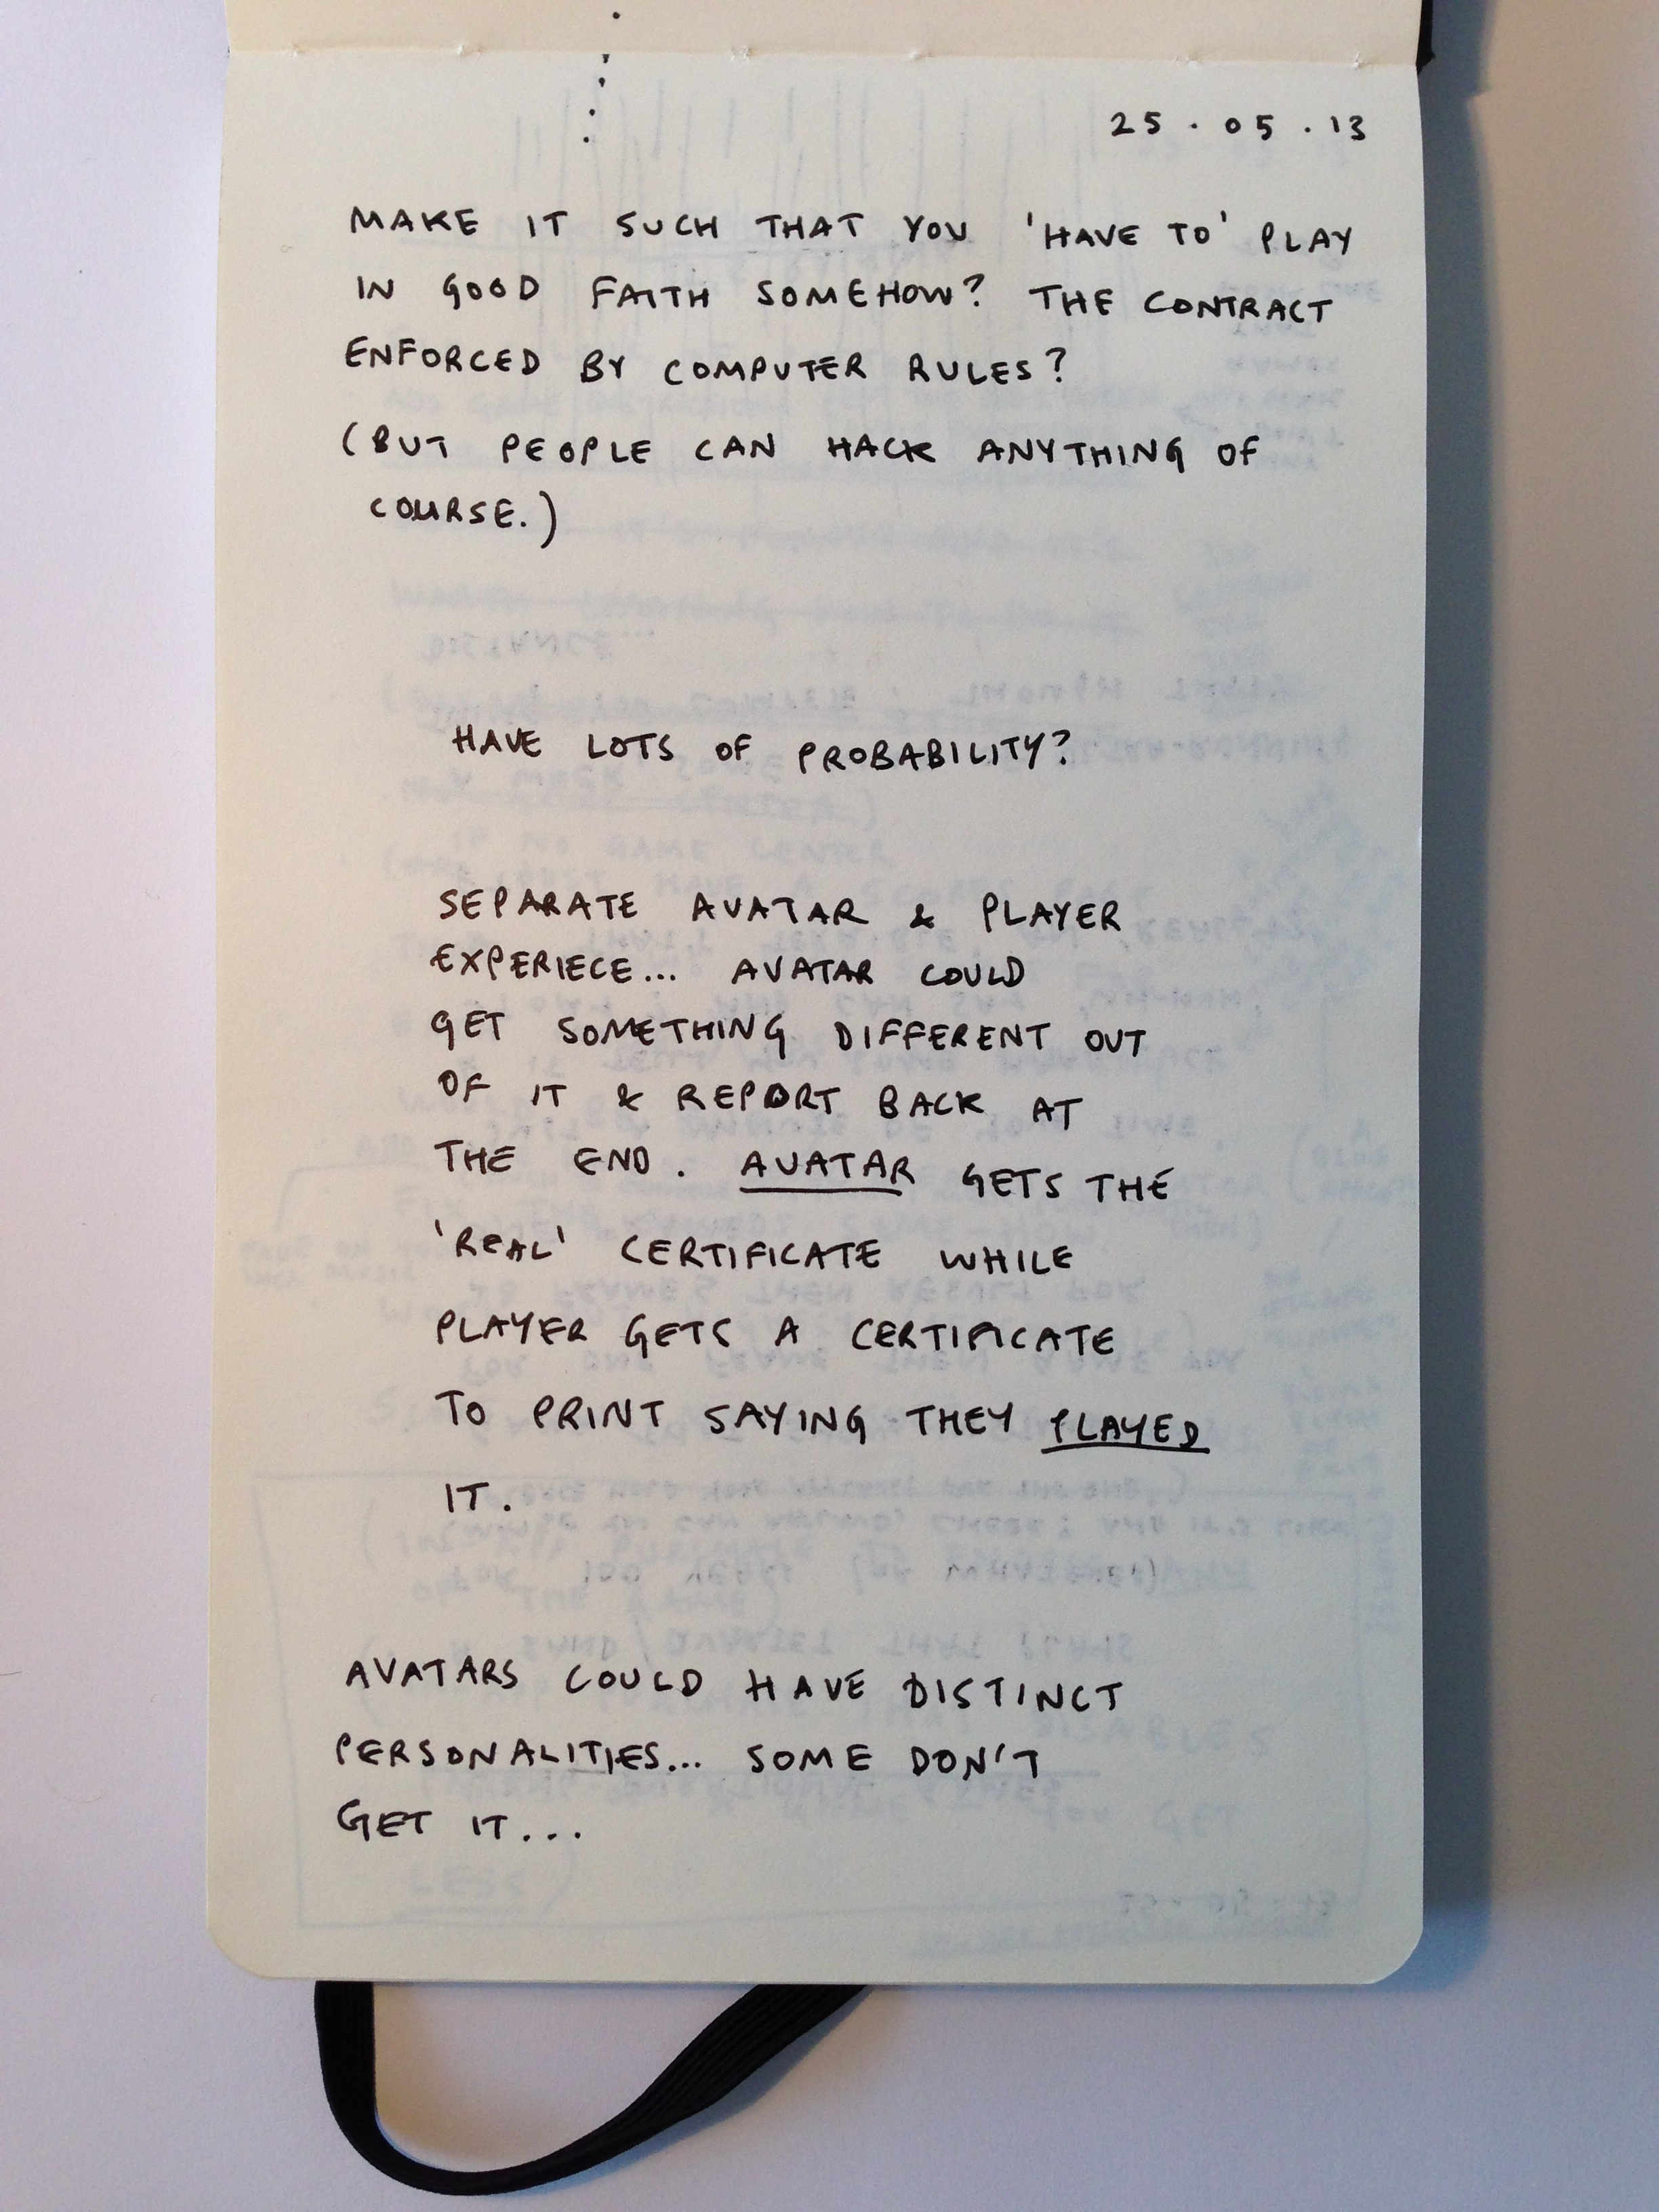 25 . 05 . 13
MAKE IT SUCH THAT YOU 'HAVE TO' PLAY
IN GOOD FAITH SOMEHOW? THE CONTRACT
ENFORCED BY COMPUTER RULES?
(BUT PEOPLE CAN HACK ANYTHING OF
COURSE.)
HAVE LOTS OF PROBABILITY?
SEPARATE AVATAR & PLAYER
EXPERIECE... AVATAR COULD
GET SOMETHING DIFFERENT OUT
OF IT & REPORT BACK AT
THE END. AVATAR GETS THE
'REAL' CERTIFICATE WHILE
PLAYER GETS A CERTIFICATE
TO PRINT SAYING THEY PLAYED
IT.
AVATARS COULD HAVE DISTINCT
PERSONALITIES... SOME DON'T
GET IT...